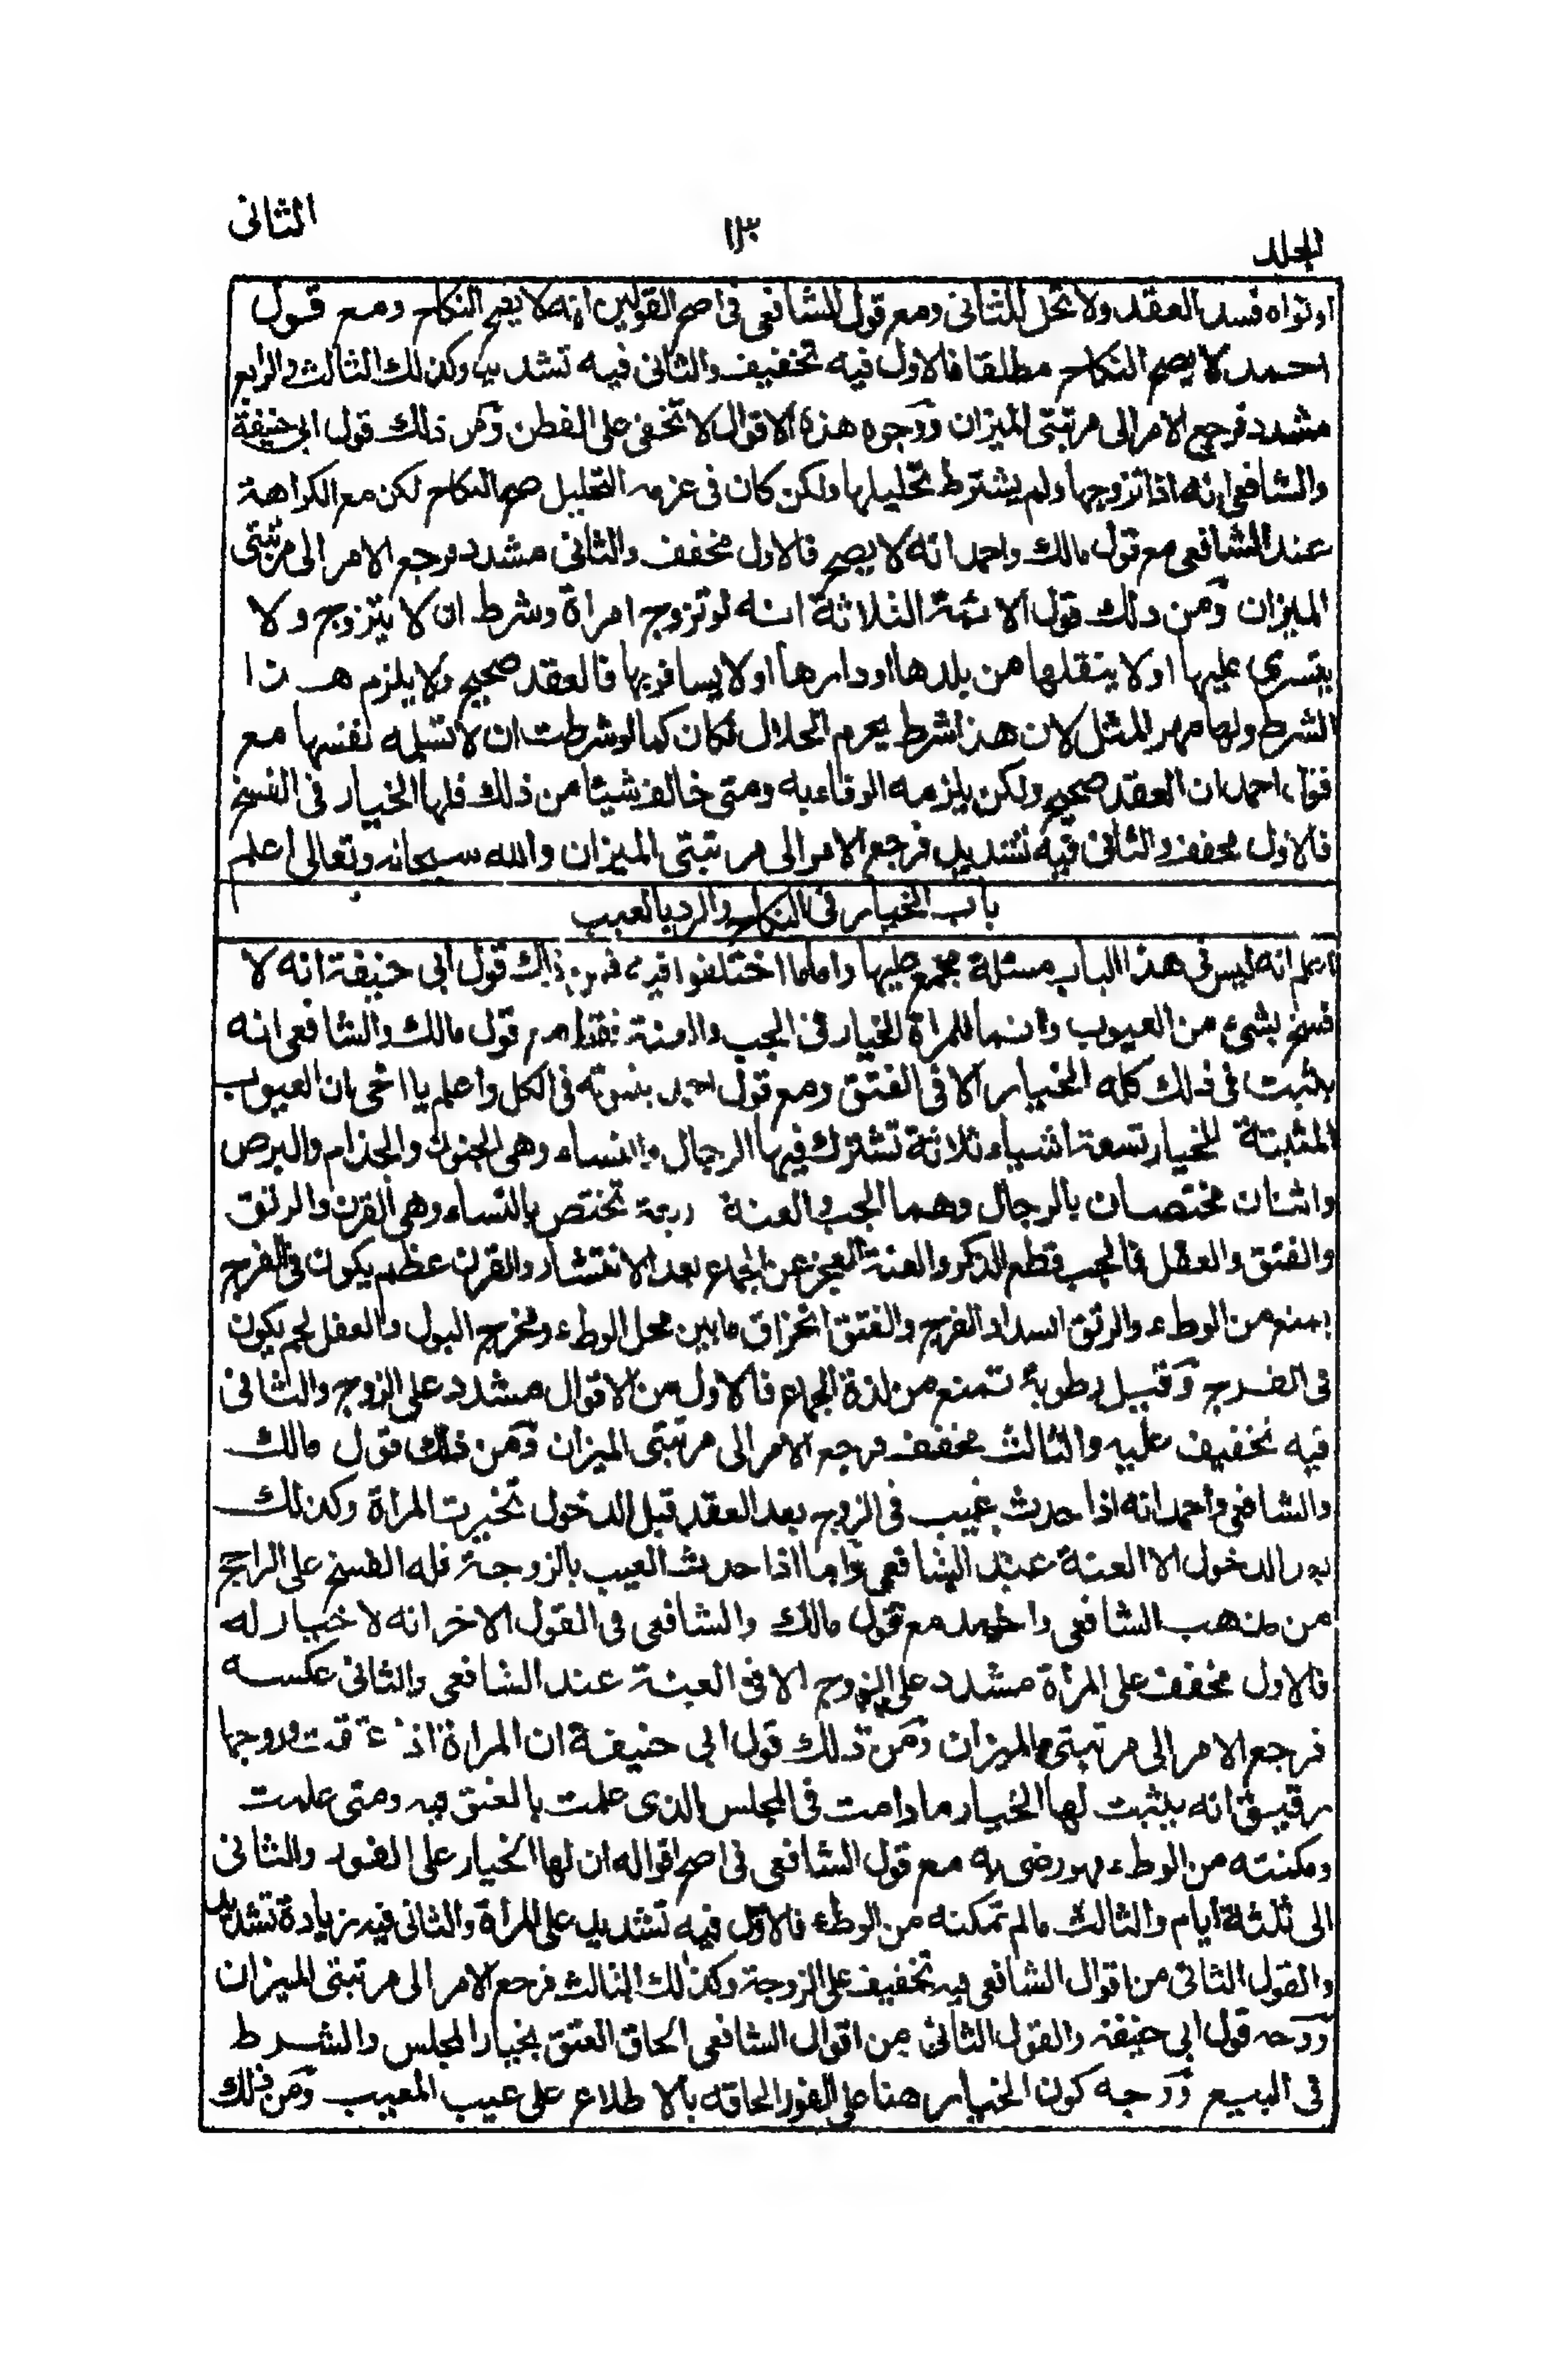 المجلد
١٣٠
الثانى
او نواه فسد العقد ولا تحل للثانى ومع قول الشافعى فى اصح القولين انه لا يصح النكاح ومع قول
احمد لا يصح النكاح مطلقا فالاول فيه تخفيف والثانى فيه تشديد وكذلك الثالث والرابع
مشدد فرجع الامر الى مرتبتى الميزان ووجوه هذه الاقوال لا تخفى على الفطن ومن ذلك قول ابى حنيفة
والشافعى انه اذا تزوجها ولم يشترط تحليلها ولكن كان فى عزمه التحليل صح النكاح لكن مع الكراهة
عند الشافعى مع قول مالك واحمد انه لا يصح فالاول مخفف والثانى مشدد فرجع الامر الى مرتبتى
الميزان ومن ذلك قول الائمة الثلاثة انه لو تزوج امراة وشرط ان لا يتزوج ولا
يتسرى عليها او لا ينقلها من بلدها او دارها او لا يسافر بها فالعقد صحيح ولا يلزم هذا
الشرط ولها مهر المثل لان هذا شرط يحرم الحلال فكان كما لو شرطت ان لا تسلمه نفسها مع
قول احمد ان العقد صحيح ولكن يلزمه الوفاء به ومتى خالف شيئا من ذلك فلها الخيار فى الفسخ
فالاول مخفف والثانى فيه تشديد فرجع الامر الى مرتبتى الميزان والله سبحانه وتعالى اعلم
باب الخيار فى النكاح والرد بالعيب
اعلم انه ليس فى هذا الباب مسئلة مجمع عليها واما ما اختلفوا فيه فمن ذلك قول ابى حنيفة انه لا
فسخ بشئ من العيوب وانما للمراة الخيار فى الجب والعنة فقط مع قول مالك والشافعى انه
يثبت فى ذلك كله الخيار الا فى الفتق ومع قول احمد بثبوته فى الكل واعلم يا اخى ان العيوب
المثبتة للخيار تسعة اشياء ثلاثة تشترك فيها الرجال والنساء وهى الجنون والجذام والبرص
واثنان مختصان بالرجال وهما الجب والعنة ربعة تختص بالنساء وهى القرن والرتق
والفتق والعفل فالجب قطع الذكر والعنة العجز عن الجماع بعد الانتشار والقرن عظم يكون فى الفرج
يمنع من الوطء والرتق انسداد الفرج والفتق انخراق ما بين محل الوطء ومخرج البول والعفل لحم يكون
فى الفرج وقيل رطوبة تمنع من لذة الجماع فالاول من الاقوال مشدد على الزوج والثانى
فيه تخفيف عليه والثالث مخفف فرجع الامر الى مرتبتى الميزان ومن ذلك قول مالك
والشافعى واحمد انه اذا حدث عيب فى الزوج بعد العقد قبل الدخول تخيرت المراة وكذلك
بعد الدخول الا العنة عند الشافعى واما اذا حدث العيب بالزوجة فله الفسخ على الراجح
من مذهب الشافعى واحمد مع قول مالك والشافعى فى القول الاخر انه لا خيار له
فالاول مخفف على المرأة مشدد على الزوج الا فى العنة عند الشافعى والثانى عكسه
فرجع الامر الى مرتبتى الميزان ومن ذلك قول ابى حنيفة ان المراة اذا عتقت وزوجها
رقيق انه يثبت لها الخيار ما دامت فى المجلس الذى علمت بالعتق فيه ومتى علمت
ومكنته من الوطء فهو رضى به مع قول الشافعى فى اصح اقواله ان لها الخيار على الفور والثانى
الى ثلثة ايام والثالث ما لم تمكنه من الوطء فالاول فيه تشديد على المرأة والثانى فيه زيادة تشديد
والقول الثانى من اقوال الشافعى فيه تخفيف على الزوجة وكذلك الثالث فرجع الامر الى مرتبتى الميزان
ووجه قول ابى حنيفة والقول الثانى من اقوال الشافعى الحاق العتق بخيار المجلس والشرط
فى البيع ووجه كون الخيار هنا على الفور الحاقه بالاطلاع على عيب المعيب ومن ذلك